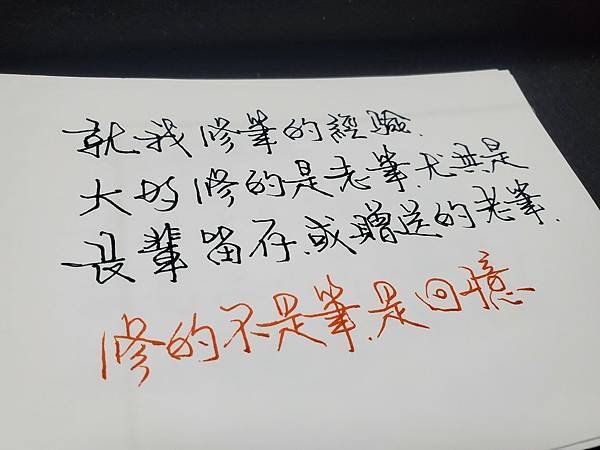 就我修筆的經驗.
大都修的是老筆.尤其是
長輩留存.或贈送的老筆.
修的不是筆.是回憶